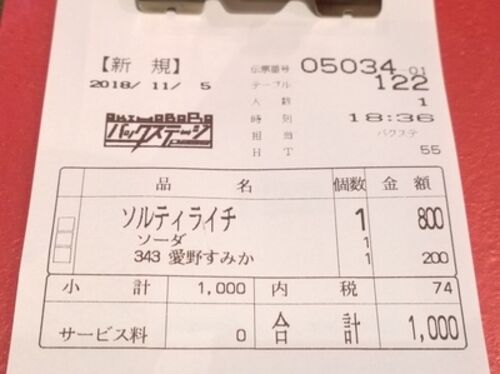 【新 規】 伝票番号 05034-01
2018/11/ 5 テーブル 122
人 数 1
時 刻 18:36
バックステージ 担 当 バクステ
H T 55
品 名 個数 金 額
ソルティライチ 1 800
ソーダ 1
343 愛野すみか 1 200
小 計 1,000 内 税 74
サービス料 0 合 計 1,000